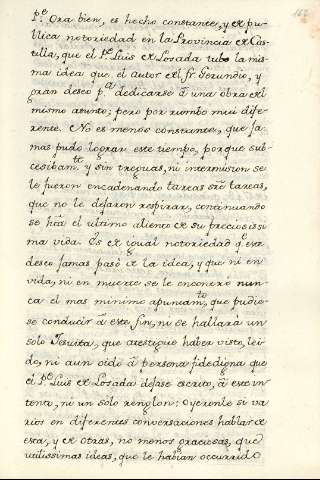 162
P.e Ora bien, es hecho constante, y de pu-
blica notoriedad en la Provincia de Cas-
tilla, que el P.e Luis de Losada tubo la mis-
ma idea que el autor del fr. Gerundio, y
gran deseo p.a dedicarse à una obra del
mismo asunto; pero por rumbo mui dife-
rente. No es menos constante, que ja-
mas pudo lograr este tiempo, porque sub-
cesibam.te y sin treguas, ni intermision se
le fueron encadenando tareas sre tareas,
que no le dejaron respirar, continuando
se hta el ultimo aliento de su preciosissi
ma vida. Es de igual notoriedad q̃ este
deseo jamas pasò de la idea, y que ni en
vida, ni en muerte se le encontrò nun-
ca el mas minimo apuntam.to, que pudie-
se conducir à este fin, ni se hallarà un
solo Jesuita, que atestigue haber visto, lei-
do, ni aun oido à persona fidedigna que
el P.e Luis de Losada dejase escrito, à este in
tento, ni un solo renglon: Oyeronle si va-
rios en diferentes conversaciones hablar de
esta, y de otras, no menos graciosas, que
utilissimas ideas, que le habian occurrido